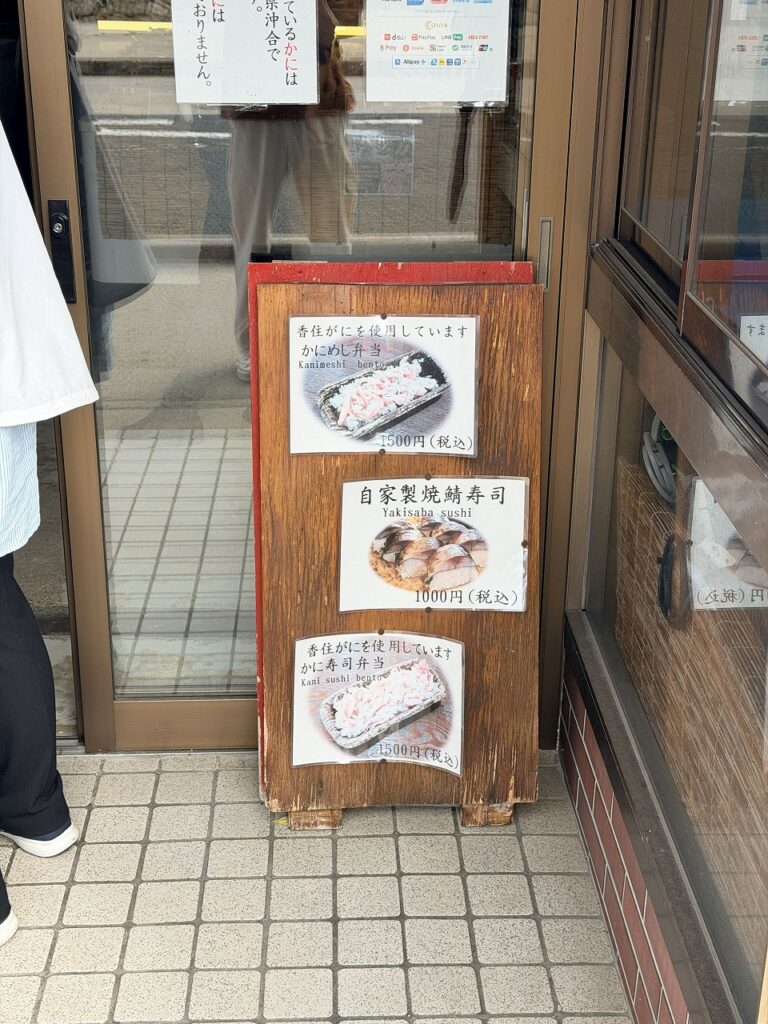 ているかには
県沖合で
す。
には
おりません。
Coin+
d払い PayPay LINE Pay
Alipay
香住がにを使用しています
かにめし弁当
Kanimeshi bento
1500円(税込)
自家製焼鯖寿司
Yakisaba sushi
1000円(税込)
香住がにを使用しています
かに寿司弁当
Kani sushi bento
1500円(税込)
ます
円(税込)